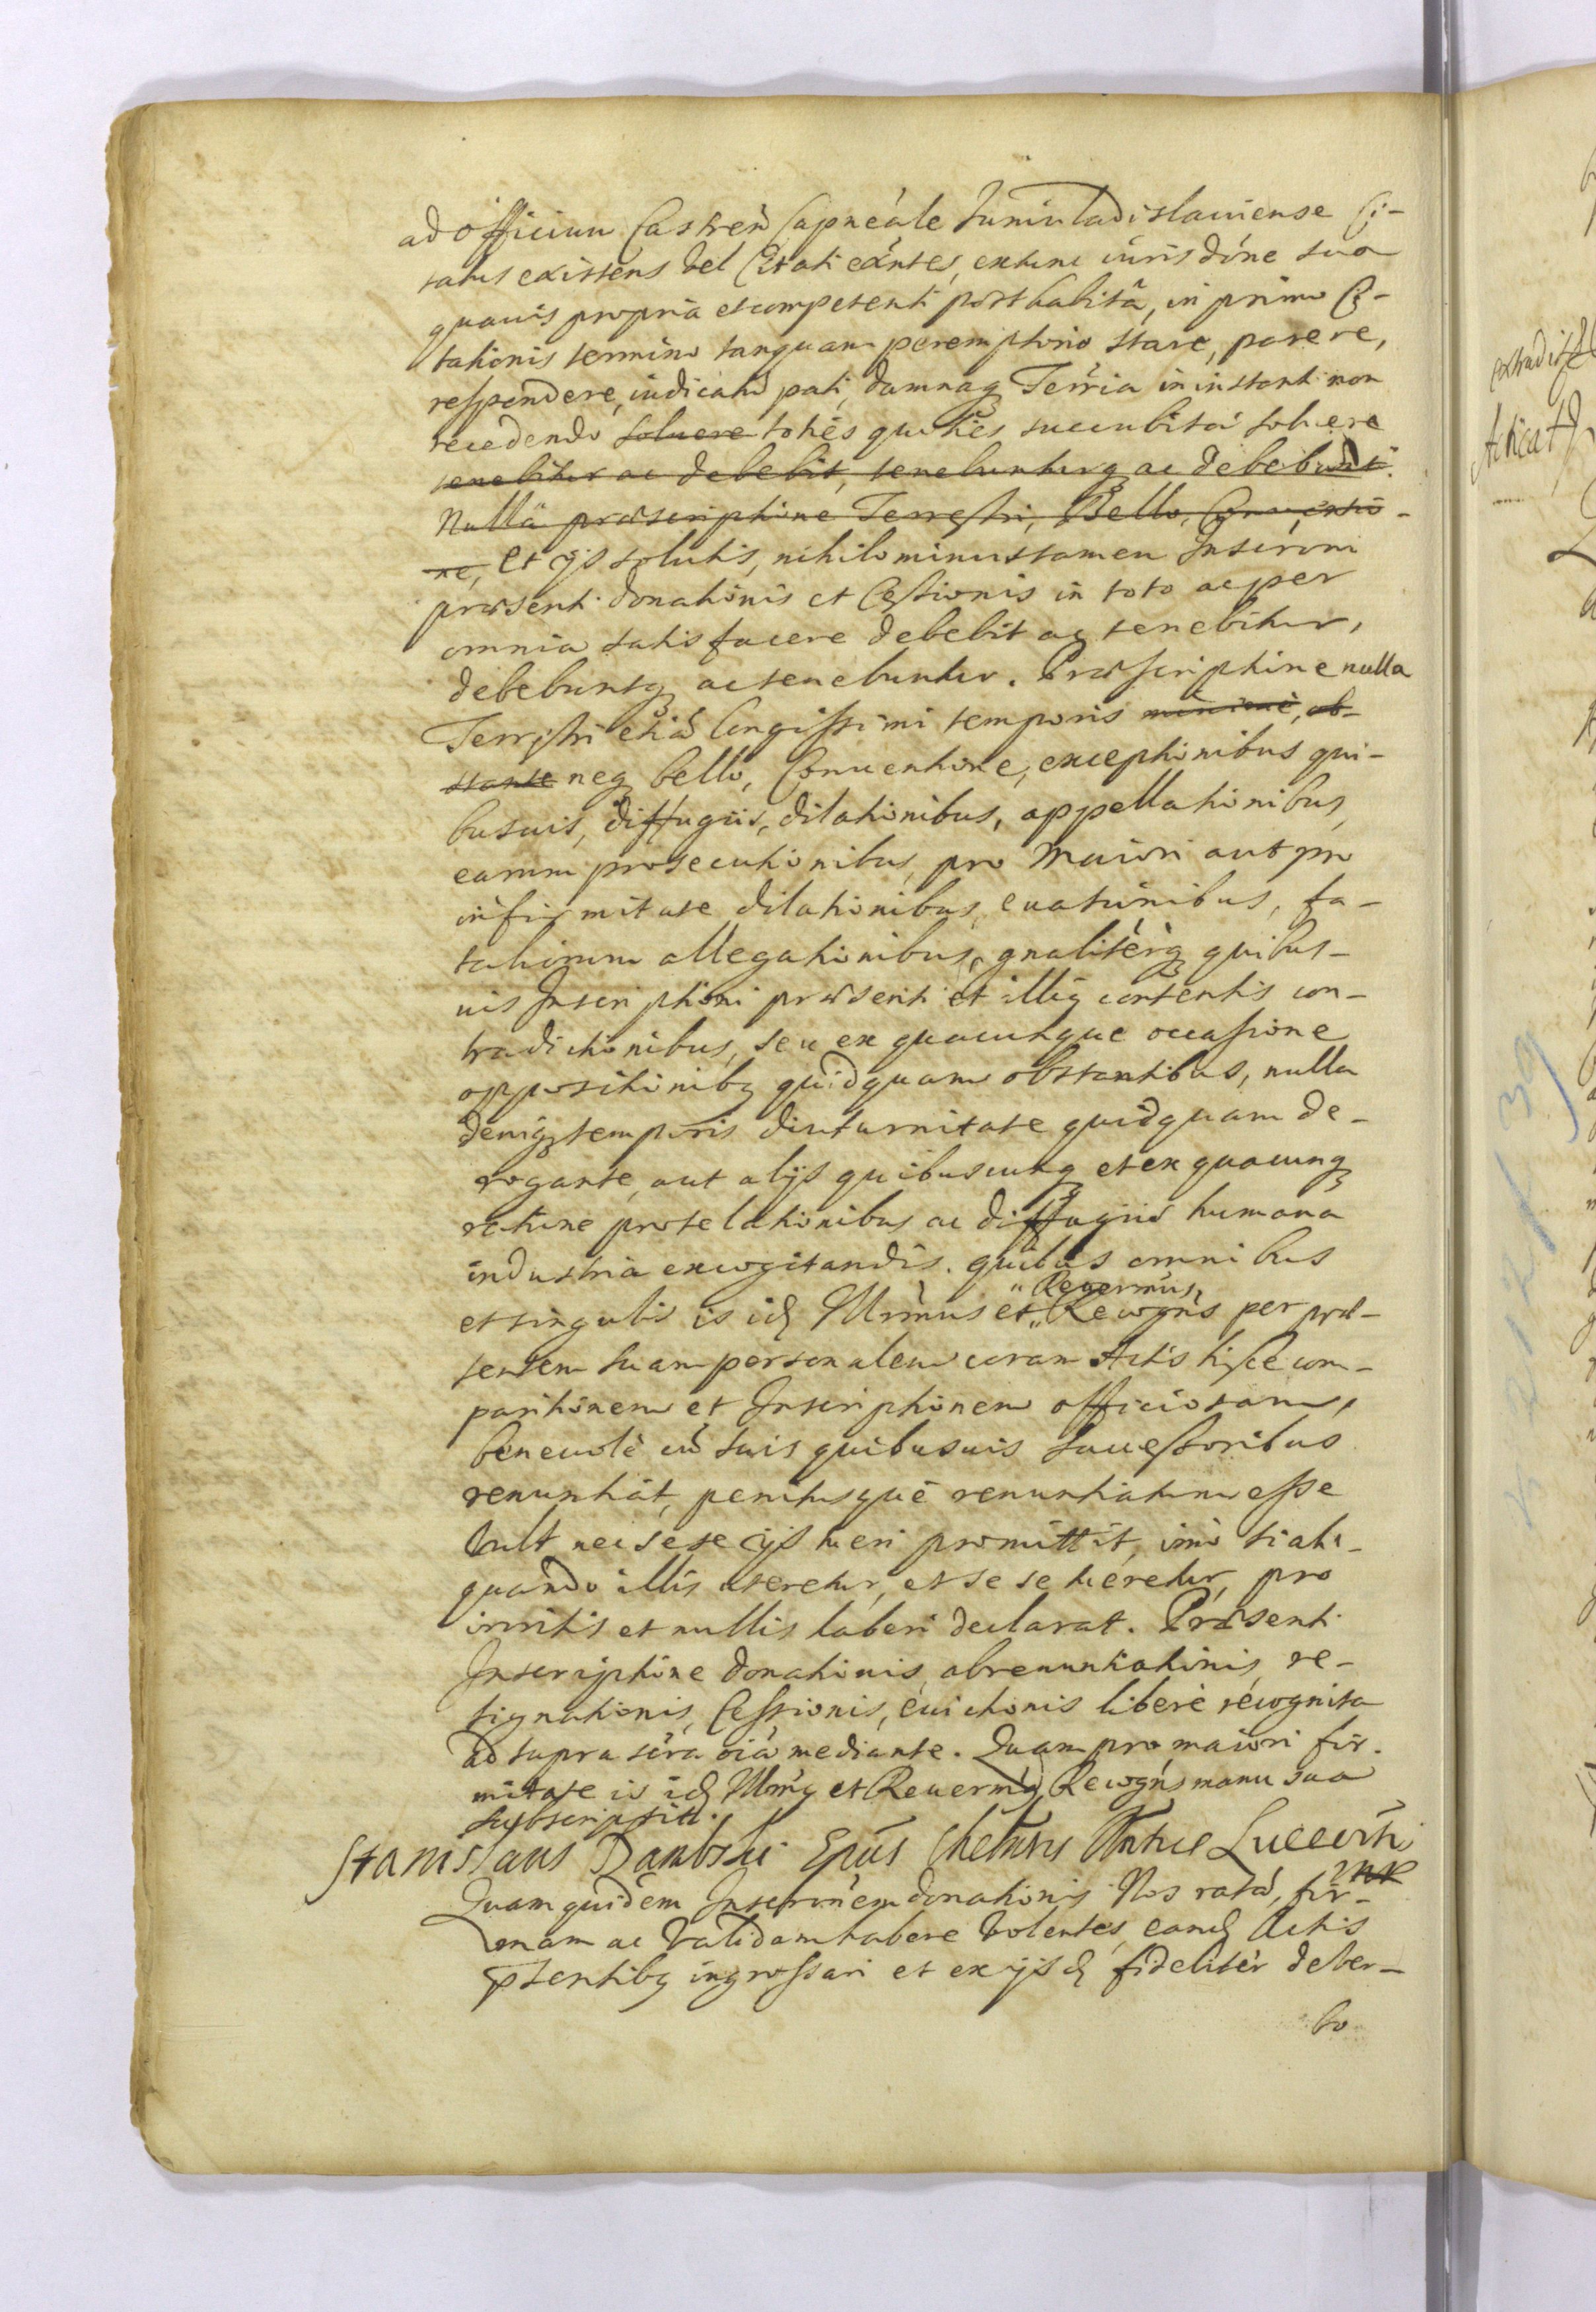 ad officium Castreñ Capneále Juniuladislauiense Ci-
tatus existens vel Citati exántes, extunc iurisdóne sua
quauis propria et competenti posthabitâ, in primo Ci-
tationis termino tanquam peremptorio stare, parere,
respondere, iudicatũ pati, damnaq Terría in instanti non
recedendo soluere toties quoties succubitâ soluere
tenebitur ac debebit, tenebunturq ac debebunt.
Nullâ præscriptione Terrestri, Bello, Conuentio-
ne, et ijs solutis, nihilominus tamen Inscróni
præsenti donationis et Cessionis in toto ac per
omnia satisfacere debebit ac tenebitur,
debebuntq ac tenebuntur. Præscriptione nulla
Terrestri etiã longissimi temporis minimè, ob-
stante neq bello, Conuentione, exceptionibus qui-
busuis, diffugiis, dilationibus, appellationibus,
earum prosecutionibus, pro maiori aut pro
infirmitate dilationibus, euasionibus, fa-
taliorum allegationibus, gnalitérq quibus-
uis Inscriptioni præsenti et illiq contentis con-
tradictionibus, seu ex quacunque occasione
oppositionibq quidquam obstantibus, nulla
deniq temporis diuturnitate quidquam de-
rogante, aut alijs quibuscunq et ex quacunq
ratione protelationibus ac diffugiis humana
industria excogitandis. quibus omnibus
Reuermus,
et singulis is idq Illrmus et Recogñs per præ-
sentem suam personalem coram Actis hisce com-
paritionem et Inscriptionem officiosam,
beneuolè cũ suis quibusuis Successoribus
renuntiat, penitusque renuntiatum esse
vult nec sese ijs tueri promittit, imò si ali-
quando illis uteretur, et sese tueretur, pro
irritis et nullis haberi declarat. Præsenti
Inscriptione donationis, abrenuntiationis, re-
signationis, Cessionis, euictionis liberè recognita
ad supra scra oia mediante. Quam pro maiori fir-
mitate is idq Illrmq et Reuermq Recogñs manu sua
subscripsit.
Stanislaus Dambski Epûs Chelmñs Luceoriñ
Quam quidem Inscrónem donationis Nos ratã, fir-
mam ac validam habere volentes, eandq Actis
pñtentibq ingrossari et ex ijsdq fideliter deber-